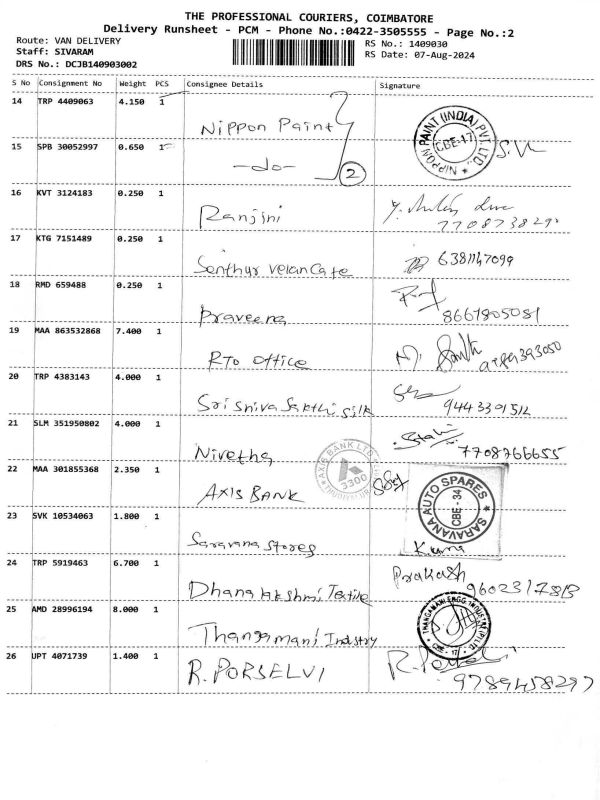 THE PROFESSIONAL COURIERS, COIMBATORE
Delivery Runsheet - PCM - Phone No.:0422-3505555 - Page No.:2
Route: VAN DELIVERY
Staff: SIVARAM
DRS No.: DCJB140903002
RS No.: 1409030
RS Date: 07-Aug-2024
S No Consignment No Weight PCS Consignee Details Signature
14 TRP 4409063 4.150 1
Nippon Paint
NIPPON PAINT (INDIA) PVT. LTD.,
CBE-17
15 SPB 30052997 0.650 1
-do-
2
16 KVT 3124183 0.250 1
Ranjini
17 KTG 7151489 0.250 1
Senthur velan Cafe
6381147099
18 RMD 659488 0.250 1
Praveena
8667805081
19 MAA 863532868 7.400 1
RTO Office
20 TRP 4383143 4.000 1
Sri Shiva Sakthi Silk
21 SLM 351950802 4.000 1
Nivetha
7708766655
AXIS BANK LTD
3300
22 MAA 301855368 2.350 1
AXIS BANK
SARAVANA AUTO SPARES
CBE - 34
23 SVK 10534063 1.800 1
Saravana Stores
24 TRP 5919463 6.700 1
Dhanalakshmi Textile
Prakash
25 AMD 28996194 8.000 1
Thangamani Industry
26 UPT 4071739 1.400 1
R. PORSELVI
9789458297